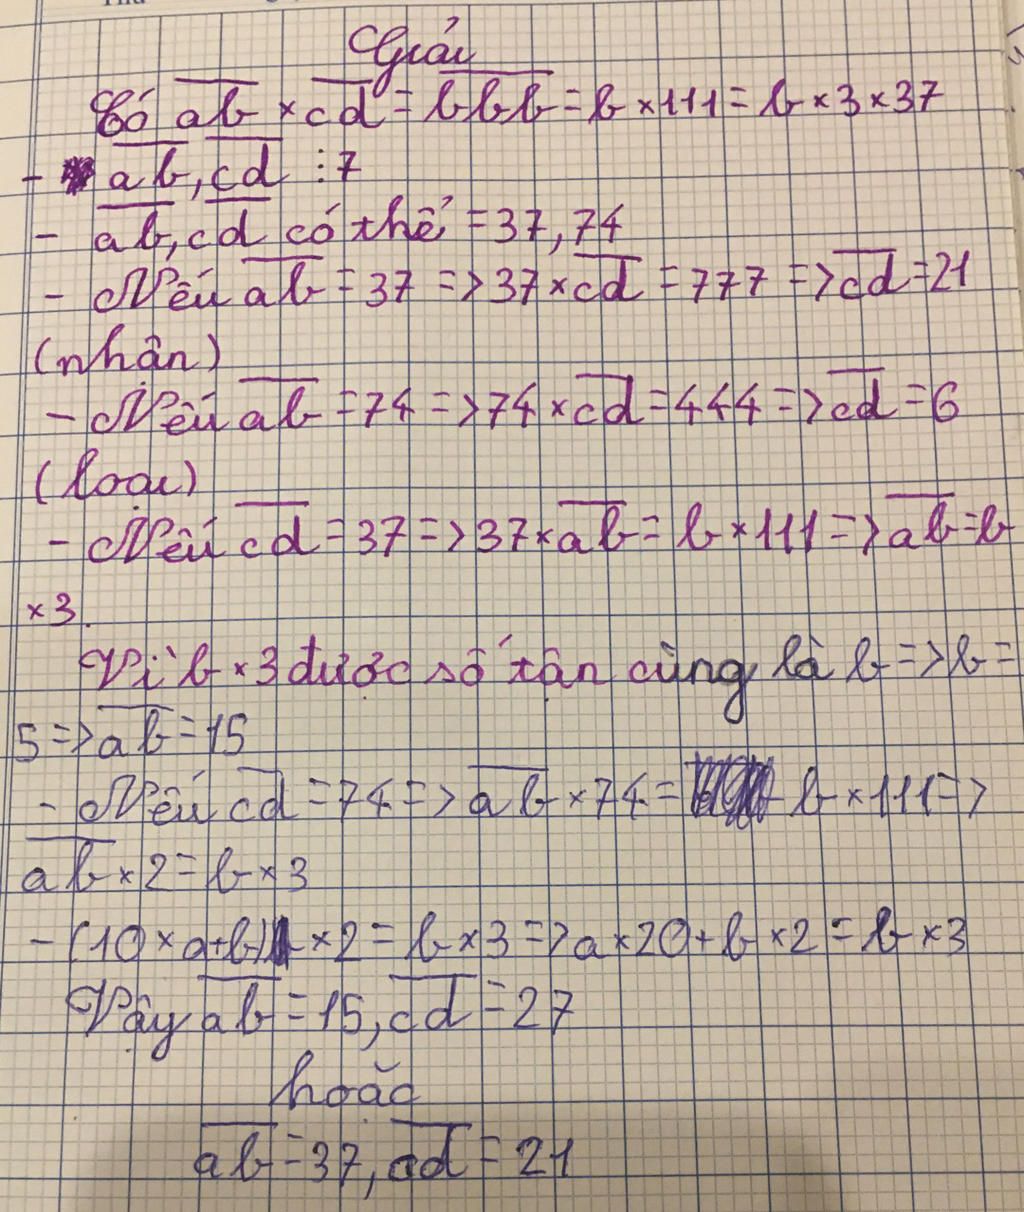 Giải
Có ab × cd = bbb = b × 111 = b × 3 × 37
- ab, cd ⋮ 7
- ab, cd có thể = 37, 74
- Nếu ab = 37 => 37 × cd = 777 => cd = 21
(nhận)
- Nếu ab = 74 => 74 × cd = 444 => cd = 6
(loại)
- Nếu cd = 37 => 37 × ab = b × 111 => ab = b
× 3.
Vì b × 3 được số tận cùng là b => b =
5 => ab = 15
- Nếu cd = 74 => ab × 74 = b × 111 =>
ab × 2 = b × 3
- (10 × a + b) × 2 = b × 3 => a × 20 + b × 2 = b × 3
Vậy ab = 15, cd = 27
hoặc
ab = 37, cd = 21